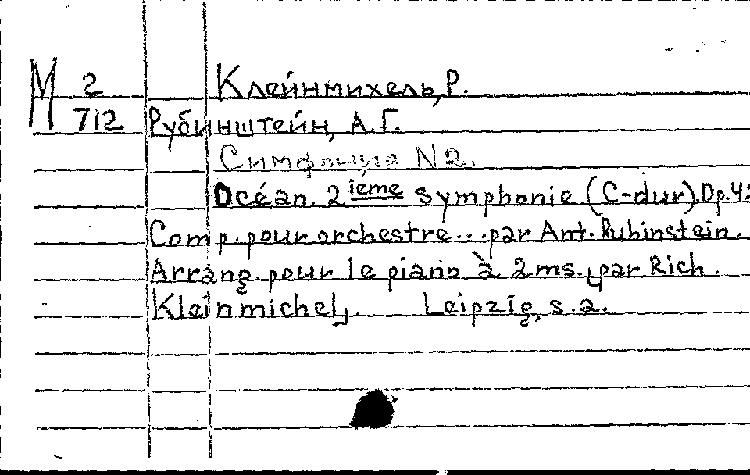 М 2 Клейнмихель, Р.
712 Рубинштейн, А.Г.
Симфония N2.
Océan. 2 ième symphonie (C-dur). Op. 42
Comp. pour orchestre... par Ant. Rubinstein.
Arrang. pour le piano à 2 ms, par Rich.
Kleinmichel,. Leipzig, s.a.